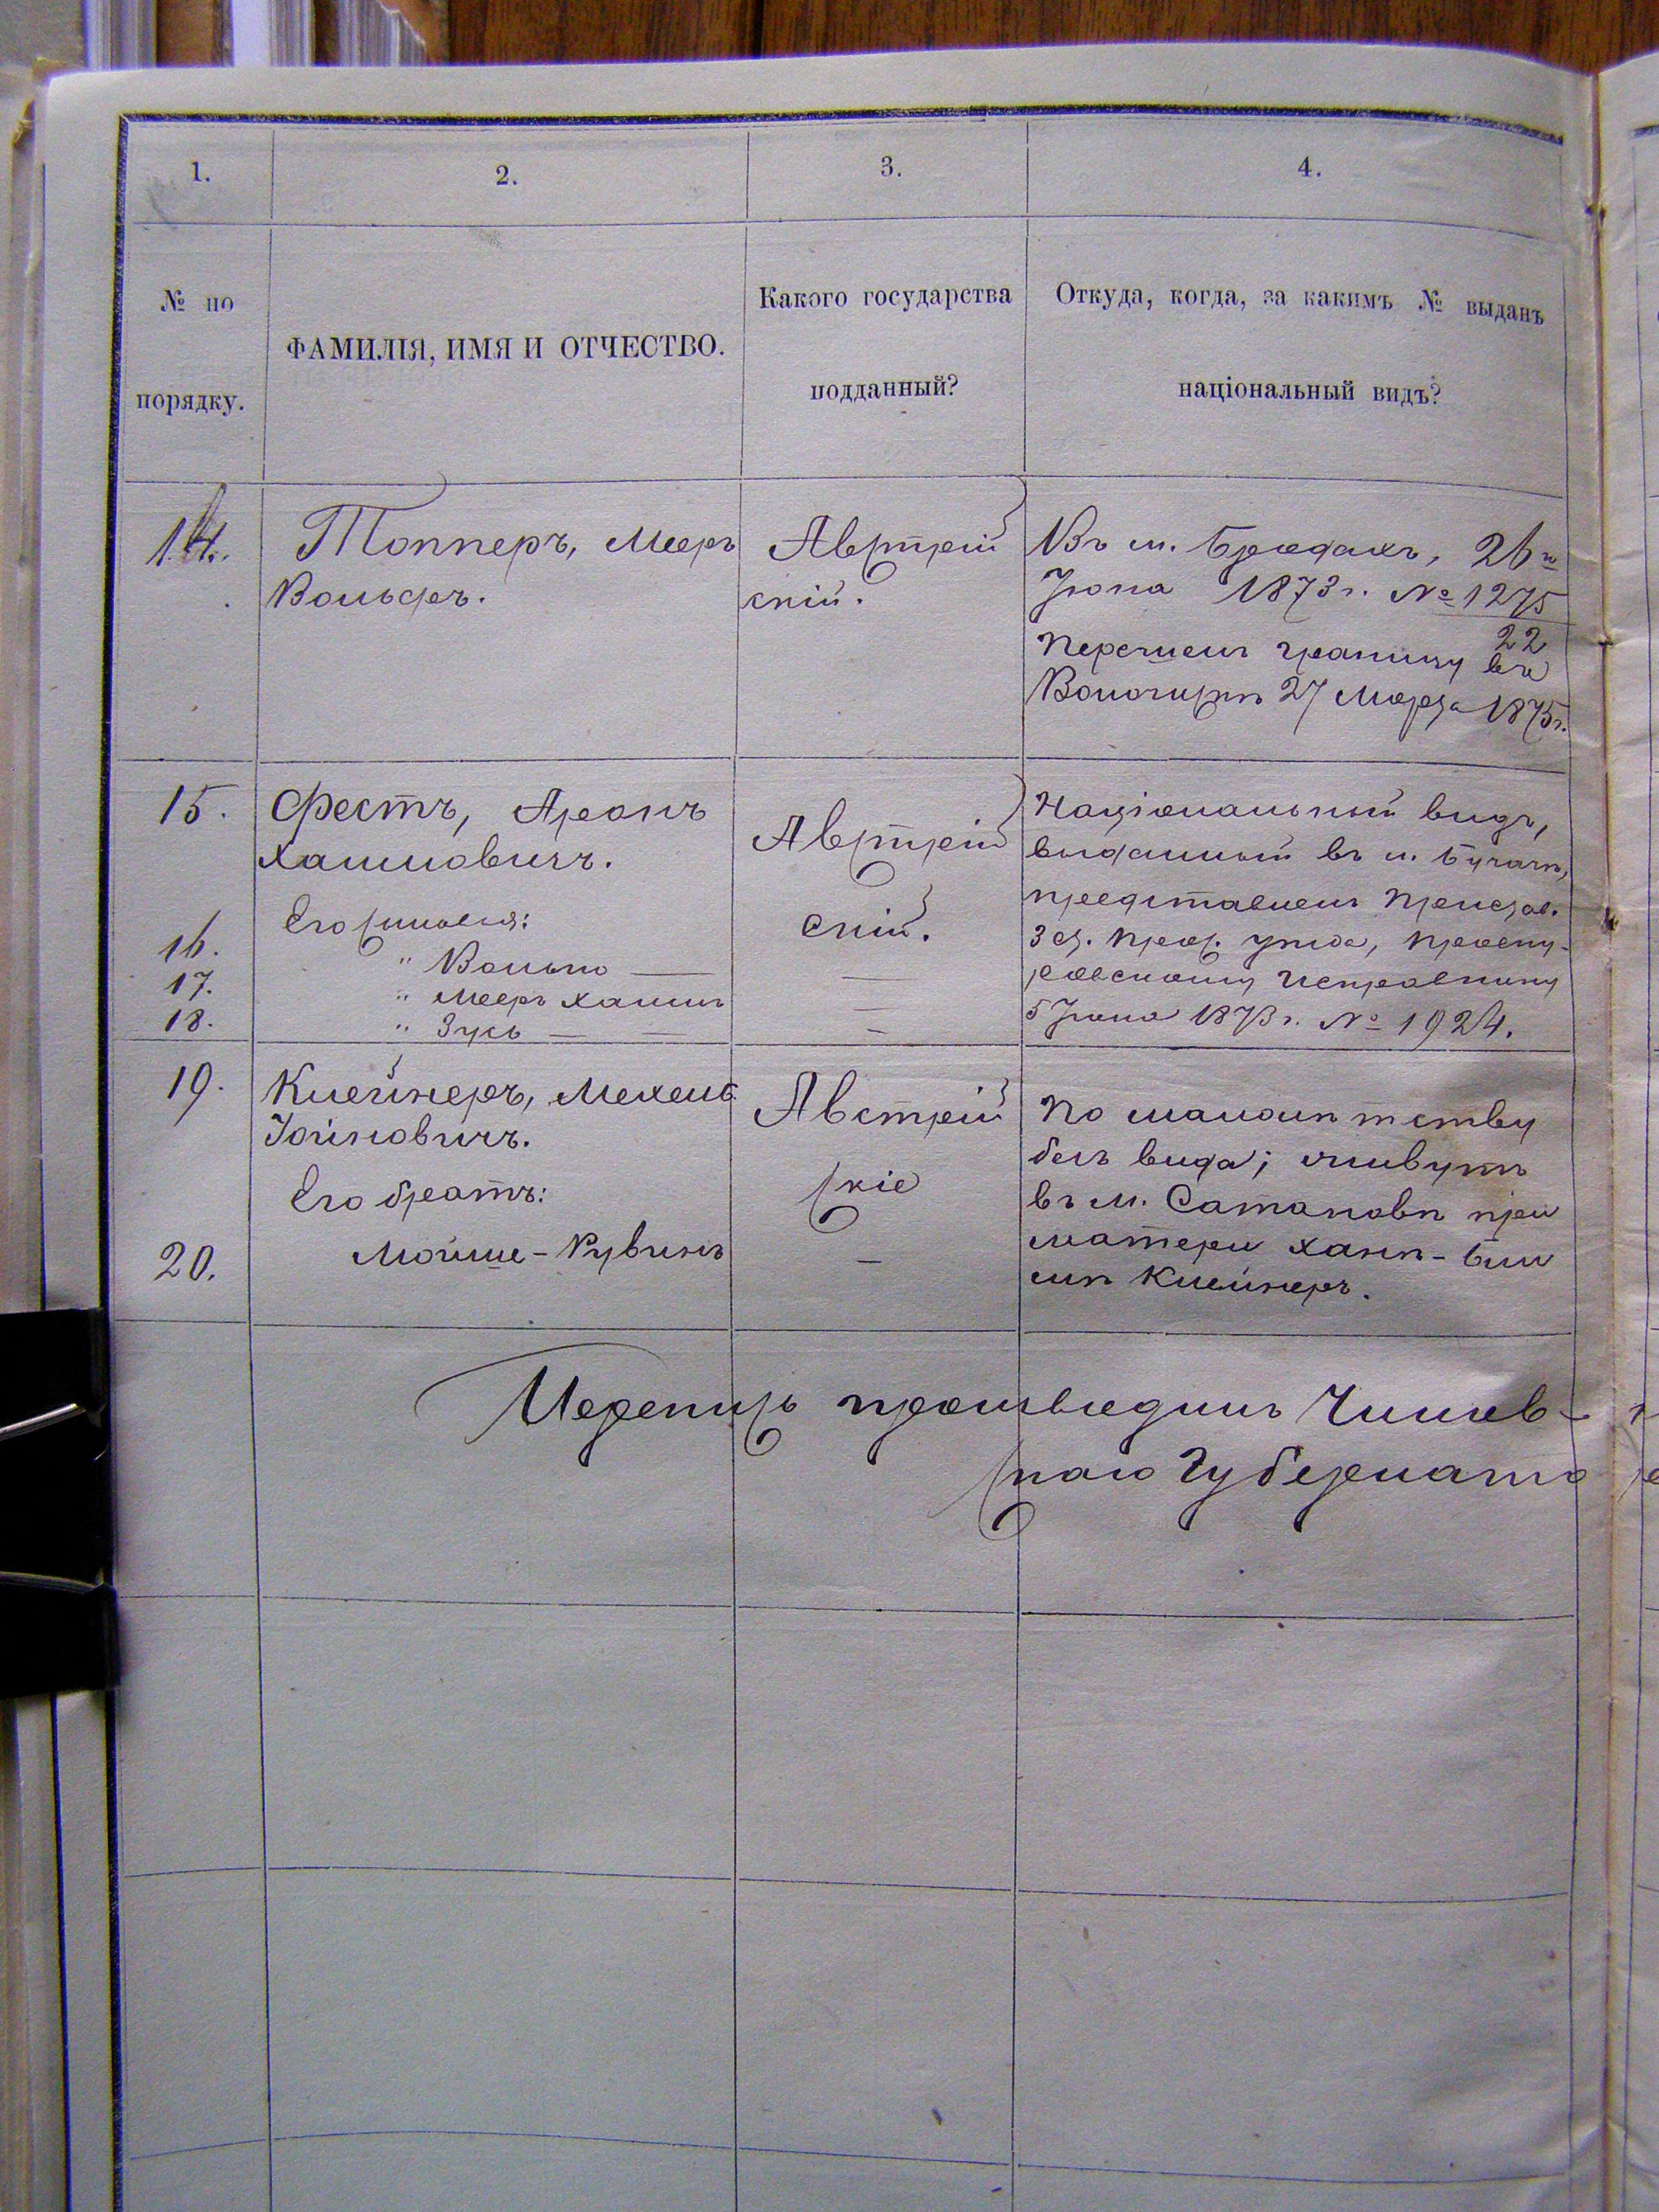 1. 2. 3. 4.
№ по порядку.
ФАМИЛІЯ, ИМЯ И ОТЧЕСТВО.
Какого государства
подданный?
Откуда, когда, за какимъ № выданъ
національный видъ?
14.
Топперъ, Мееръ
Вольфъ.
Австрій
скій.
Въ м. Бродахъ, 26го
Іюня 1873 г. № 1275
22
Перешелъ границу въ
Волочискѣ 27 Марта 1875 г.
15.
Фестъ, Аронъ
Хаимовичъ.
Его сыновья:
16. " Волько —
17. " Мееръ Хаимъ
18. " Зусь — —
Австрій
скій.
—
—
—
Національный видъ,
выданный въ м. Бучачѣ,
представленъ Пристав.
3 ст. Прос. уѣзда, Проску-
ровскому Исправнику
5 Іюня 1873 г. № 1924.
19.
Клейнеръ, Мехель
Іойновичъ.
Его братъ:
20.
Мойше-Рувинъ
Австрій
скіе
—
По малолѣтству
безъ вида; живутъ
въ м. Сатановѣ при
матери Ханѣ-Бей
лѣ Клейнеръ.
Перепись производилъ Чинов-